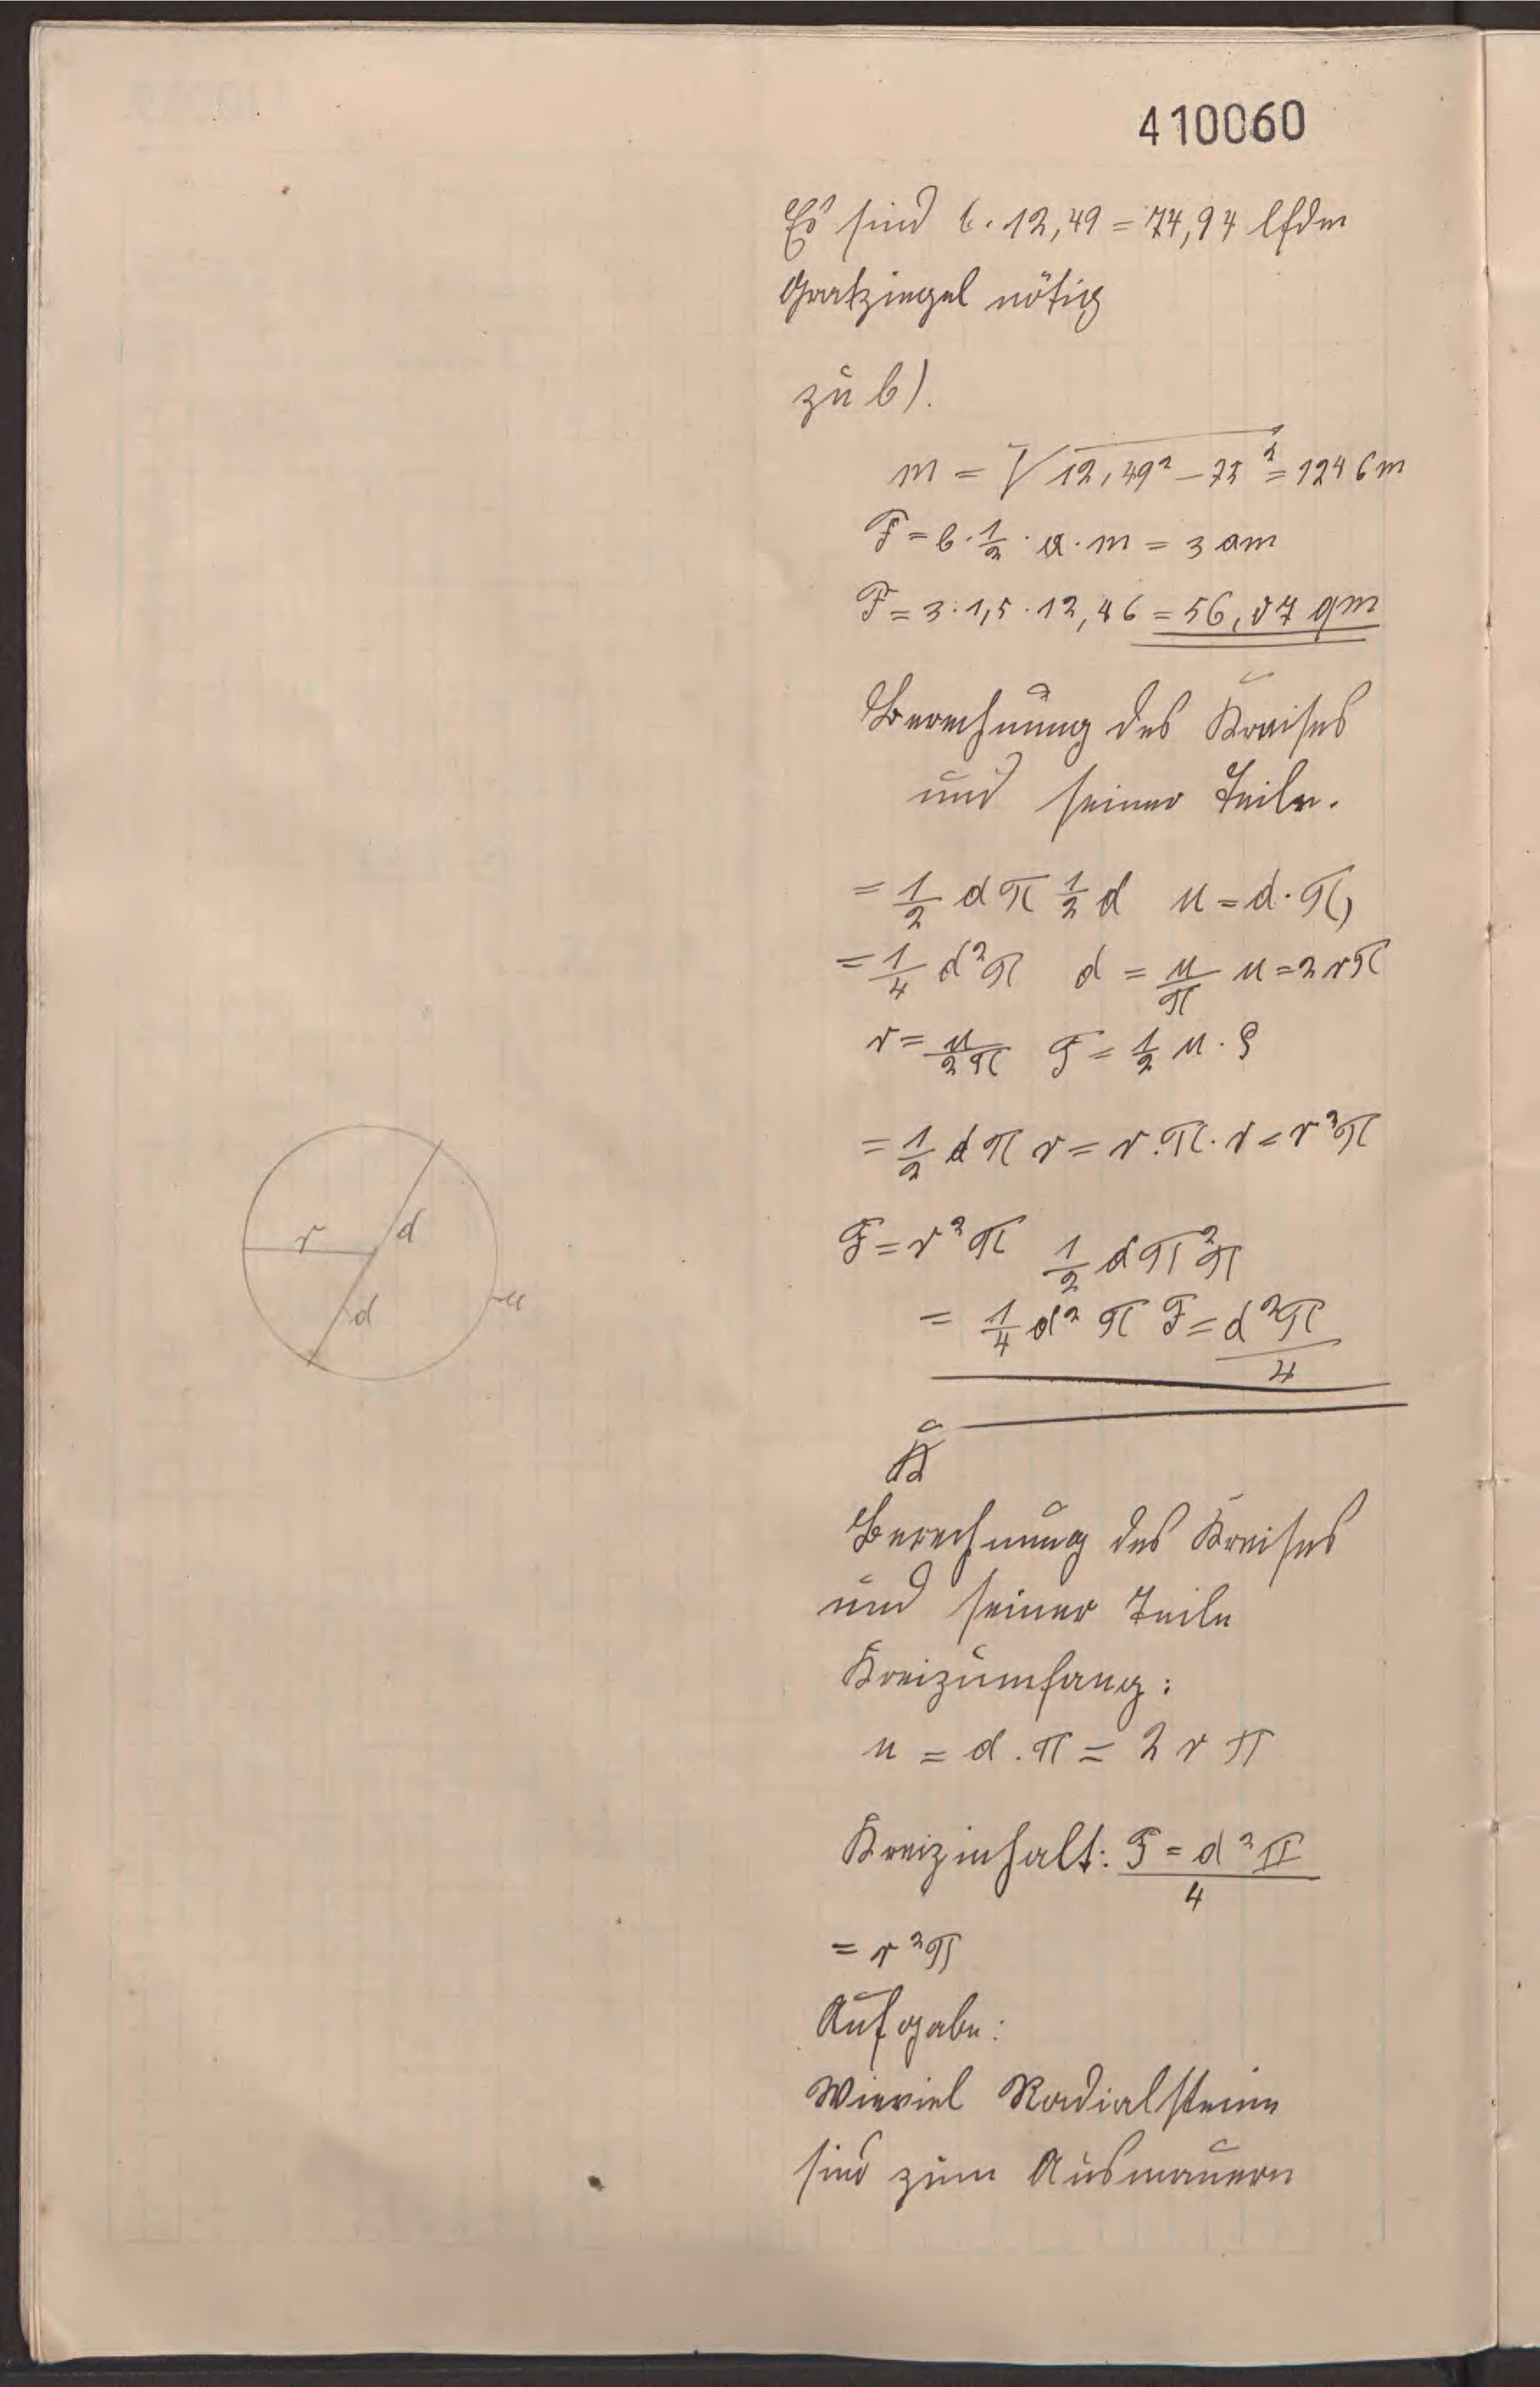 410060
Es sind 6 · 12,49 = 74,94 lfdm
Gratziegel nötig
zu b).
m = √12,49² – 75² = 1246m
F = 6 · 1/2 · a · m = 3 am
F = 3 · 1,5 · 12,46 = 56,07 qm
Berechnung des Kreises
und seiner Teile.
= 1/2 d π 1/2 d u = d · π,
= 1/4 d² π d = u/π u = 2 r π
r = u/2π F = 1/2 u · ς
= 1/2 d π r = r . π . r = r² π
r d
F = r² π 1/2 d π² π
d u
= 1/4 d² π F = d² π/4
K
Berechnung des Kreises
und seiner Teile
Kreizumfang:
u = d . π = 2 r π
Kreizinhalt: F = d² π/4
= r² π
Aufgabe:
Wieviel Radialsteine
sind zum Ausmauern